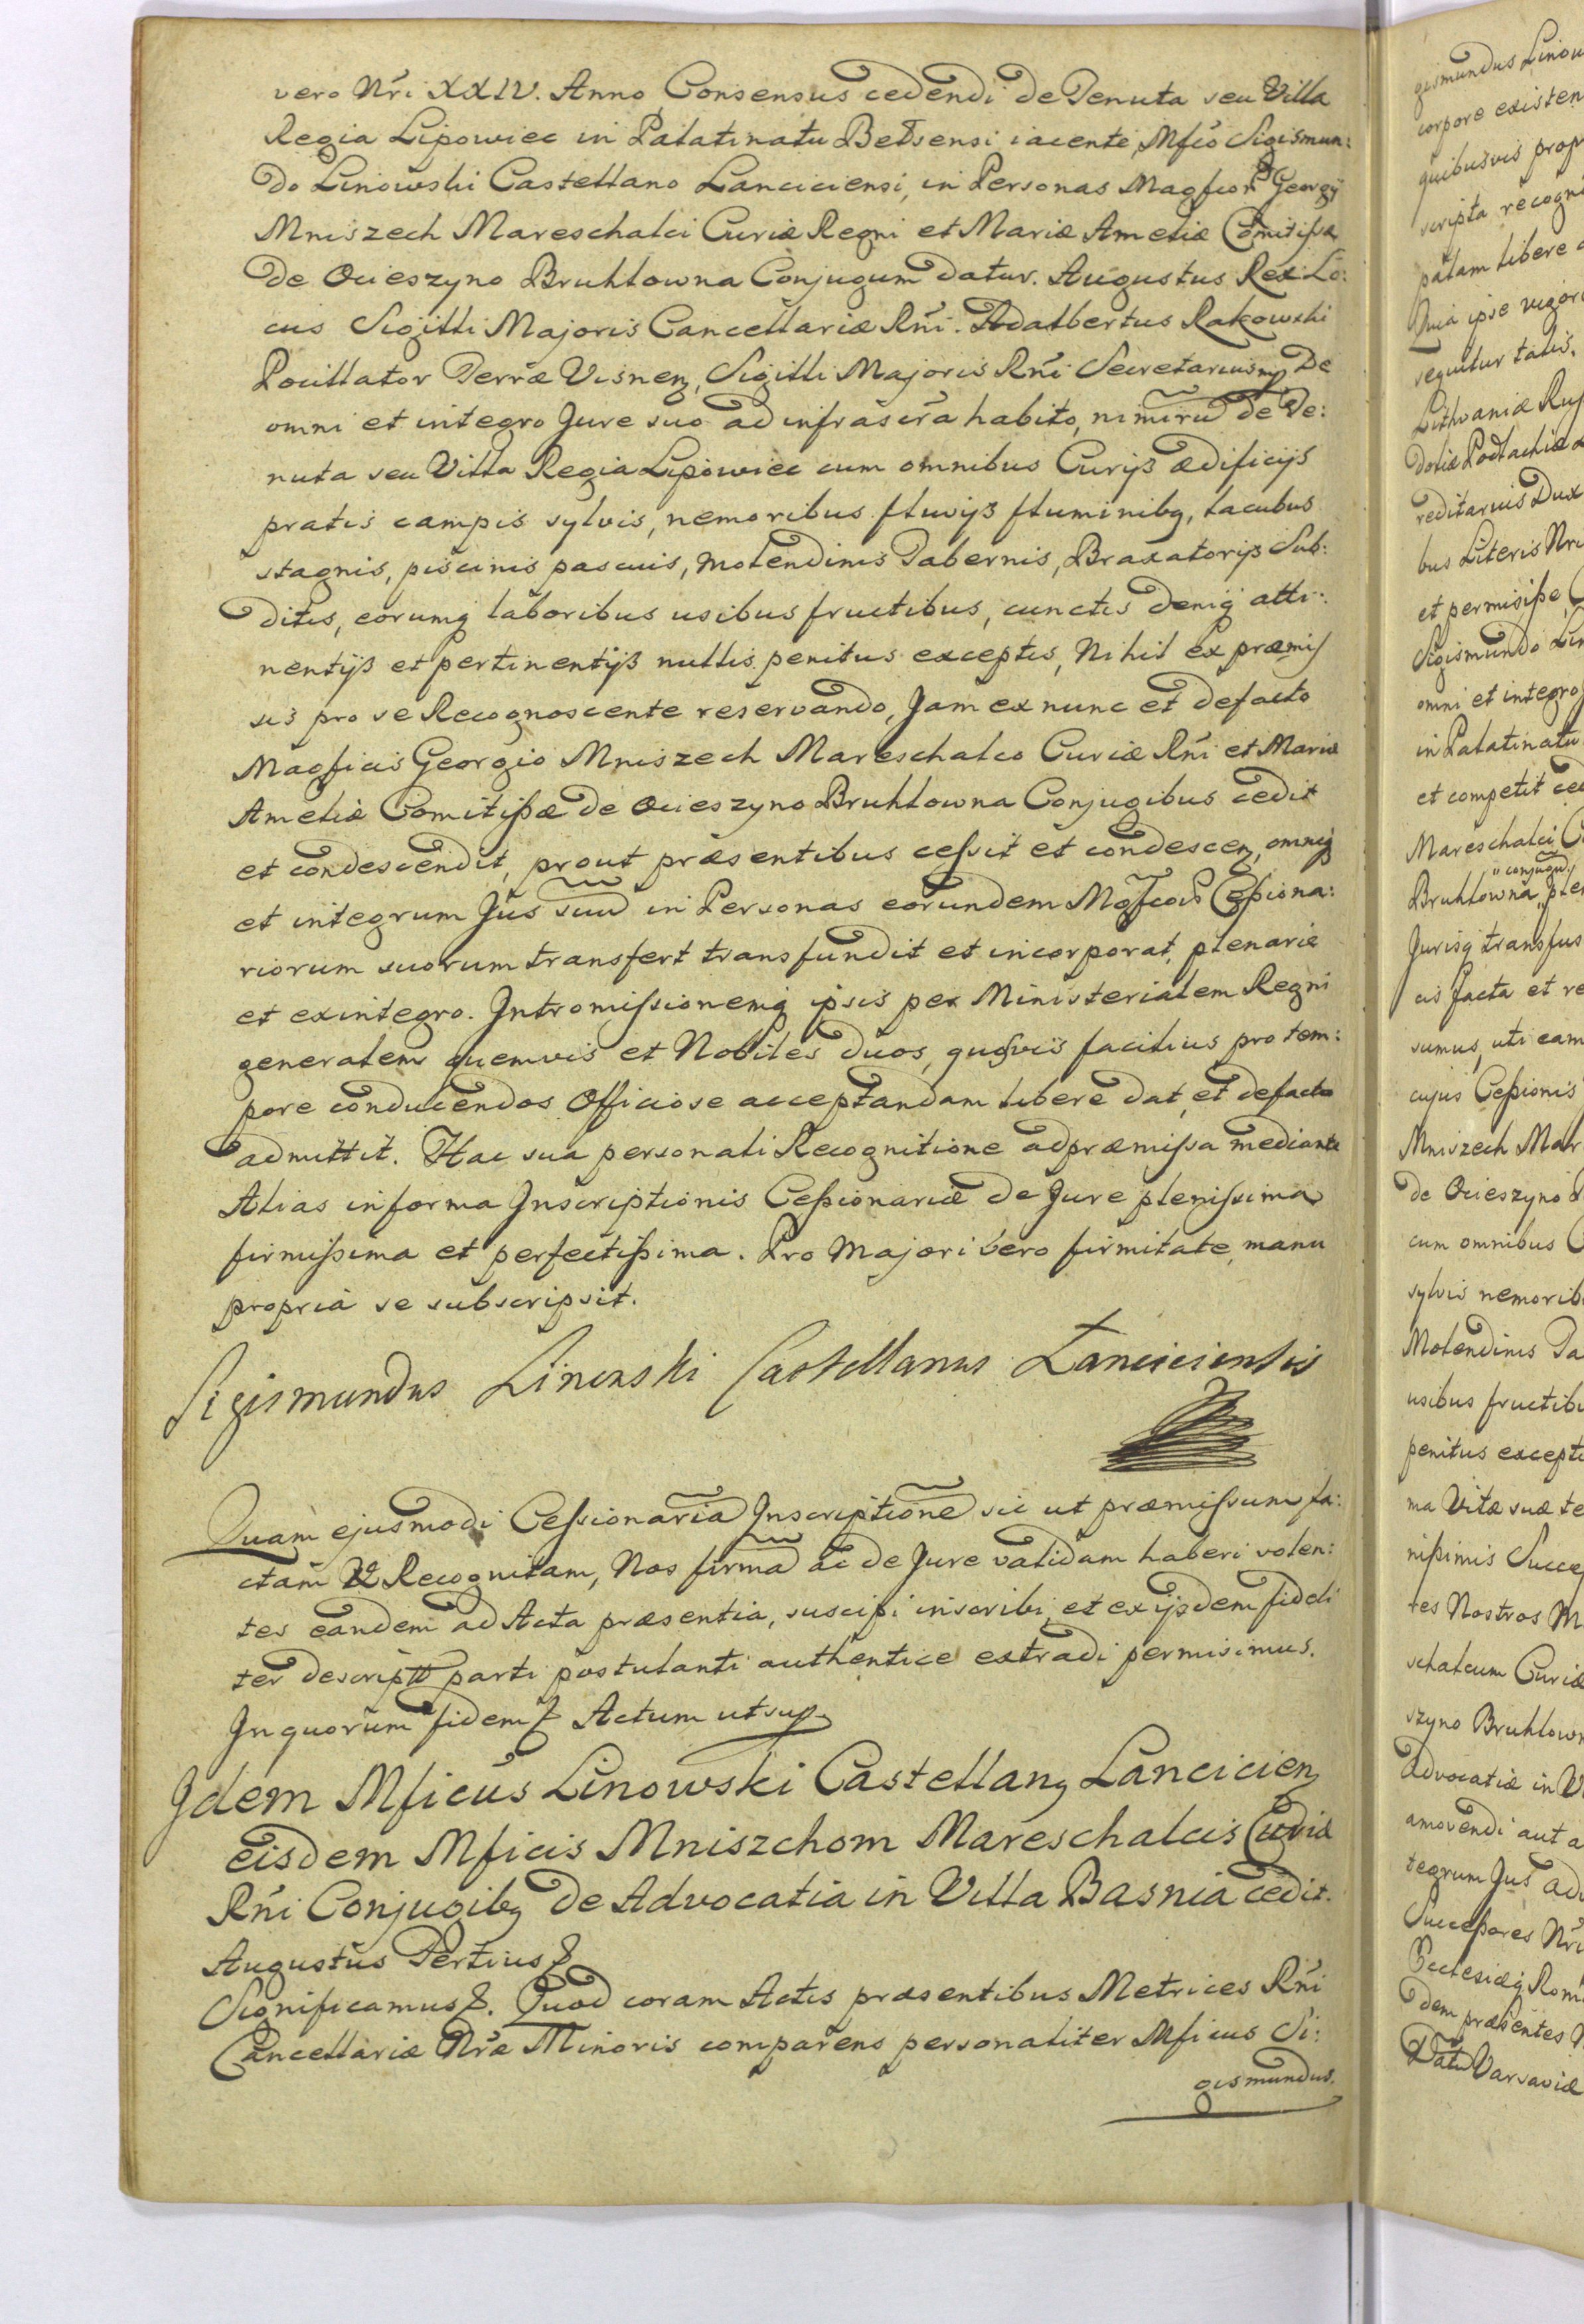 vero Nri XXIV. Anno Consensus cedendi de Tenuta seu Villa
Regia Lipowiec in Palatinatu Belsensi iacente, Mfco Sigismun:
do Linowski Castellano Lanciciensi, in Personas Magfcor Georgÿ
Mniszech Mareschalci Curiæ Regni et Mariæ Ameliæ Comitissæ
de Ocieszyno Bruhlowna Conjugum datur. Augustus Rex. Lo:
cus Sigilli Majoris Cancellariæ Rni. Adalbertus Rakowski
Pocillator Terræ Visnen, Sigilli Majoris Rni Secretarius mp De
omni et integro Jure suo ad infrascra habito, nimiru de Te:
nuta seu Villa Regia Lipowiec cum omnibus Curijs ædificijs
pratis campis sylvis, nemoribus fluvijs fluminibq, lacubus
stagnis, piscinis pascuis, Molendinis Tabernis, Braxatorijs Sub:
ditis, eorumq laboribus usibus fructibus, cunctis deniq atti:
nentijs et pertinentijs nullis penitus exceptis, Nihil ex præmis
sis pro se Recognoscente reservando, Jam ex nunc et defacto
Magficis Georgio Mniszech Mareschalco Curiæ Rni et Mariæ
Ameliæ Comitissæ de Ocieszyno Bruhlowna Conjugibus cedit
et condescendit, prout præsentibus cessit et condescen, omneq
et integrum Jus suu in Personas eorundem Mgfcor Cessiona:
riorum suorum transfert transfundit et incorporat, plenarie
et exintegro. Intromissionemq ipsis per Ministerialem Regni
generalem quemvis et Nobiles duos, quosvis facilius pro tem:
pore conducendos Officiose acceptandam libere dat, et defacto
admittit. Hac sua personali Recognitione ad præmissa mediante
Alias in forma Inscriptionis Cessionariæ de Jure plenissima
firmissima et perfectissima. Pro Majori vero firmitate, manu
propria se subscripsit.
Sigismundus Linowski Castellanus Lanciciensis
Quam ejusmodi Cessionaria Inscriptione sic ut præmissum fa:
ctam & Recognitam, Nos firma ac de Jure validam haberi volen:
tes eandem ad Acta præsentia, suscipi inscribi, et ex ijsdem fideli
ter descript parti postulanti authentice extradi permisimus.
In quorum fidem & Actum ut sup
Idem Mficus Linowski Castellanq Lancicien
eisdem Mficis Mniszchom Mareschalcis Curiæ
Rni Conjugibq de Advocatia in Villa Basnia cedit.
Augustus Tertius &
Significamus &. Quod coram Actis præsentibus Metrices Rni
Cancellariæ Nræ Minoris comparens personaliter Mficus Si:
gismundus.
gismundus Linow
corpore existen
quibusvis prop
scripta recogn
palam libere
Quia ipse vigor
sequitur talis.
Lithvaniæ Rus
doliæ Podlachiæ
reditarius Dux
bus Literis Nri
et permisisse
Sigismundo Lin
omni et integro
in Palatinatu
et competit ced
Mareschalci C
conjugu
Bruhlowna, ple
Jurisq transfus
cis facta et re
sumus, uti eam
cujus Cessionis
Mniszech Mar
de Ocieszyno B
cum omnibus C
sylvis nemorib
Molendinis Ta
usibus fructib
penitus excepti
ma Vitæ suæ te
nissimis Succes
tes Nostros M
schalcum Curiæ
szyno Bruhlow
Advocatiæ in V
amovendi aut a
tegrum Jus ad
Successores Nri
Ecclesiæq Rom
dem præsentes
Datu Varsaviæ